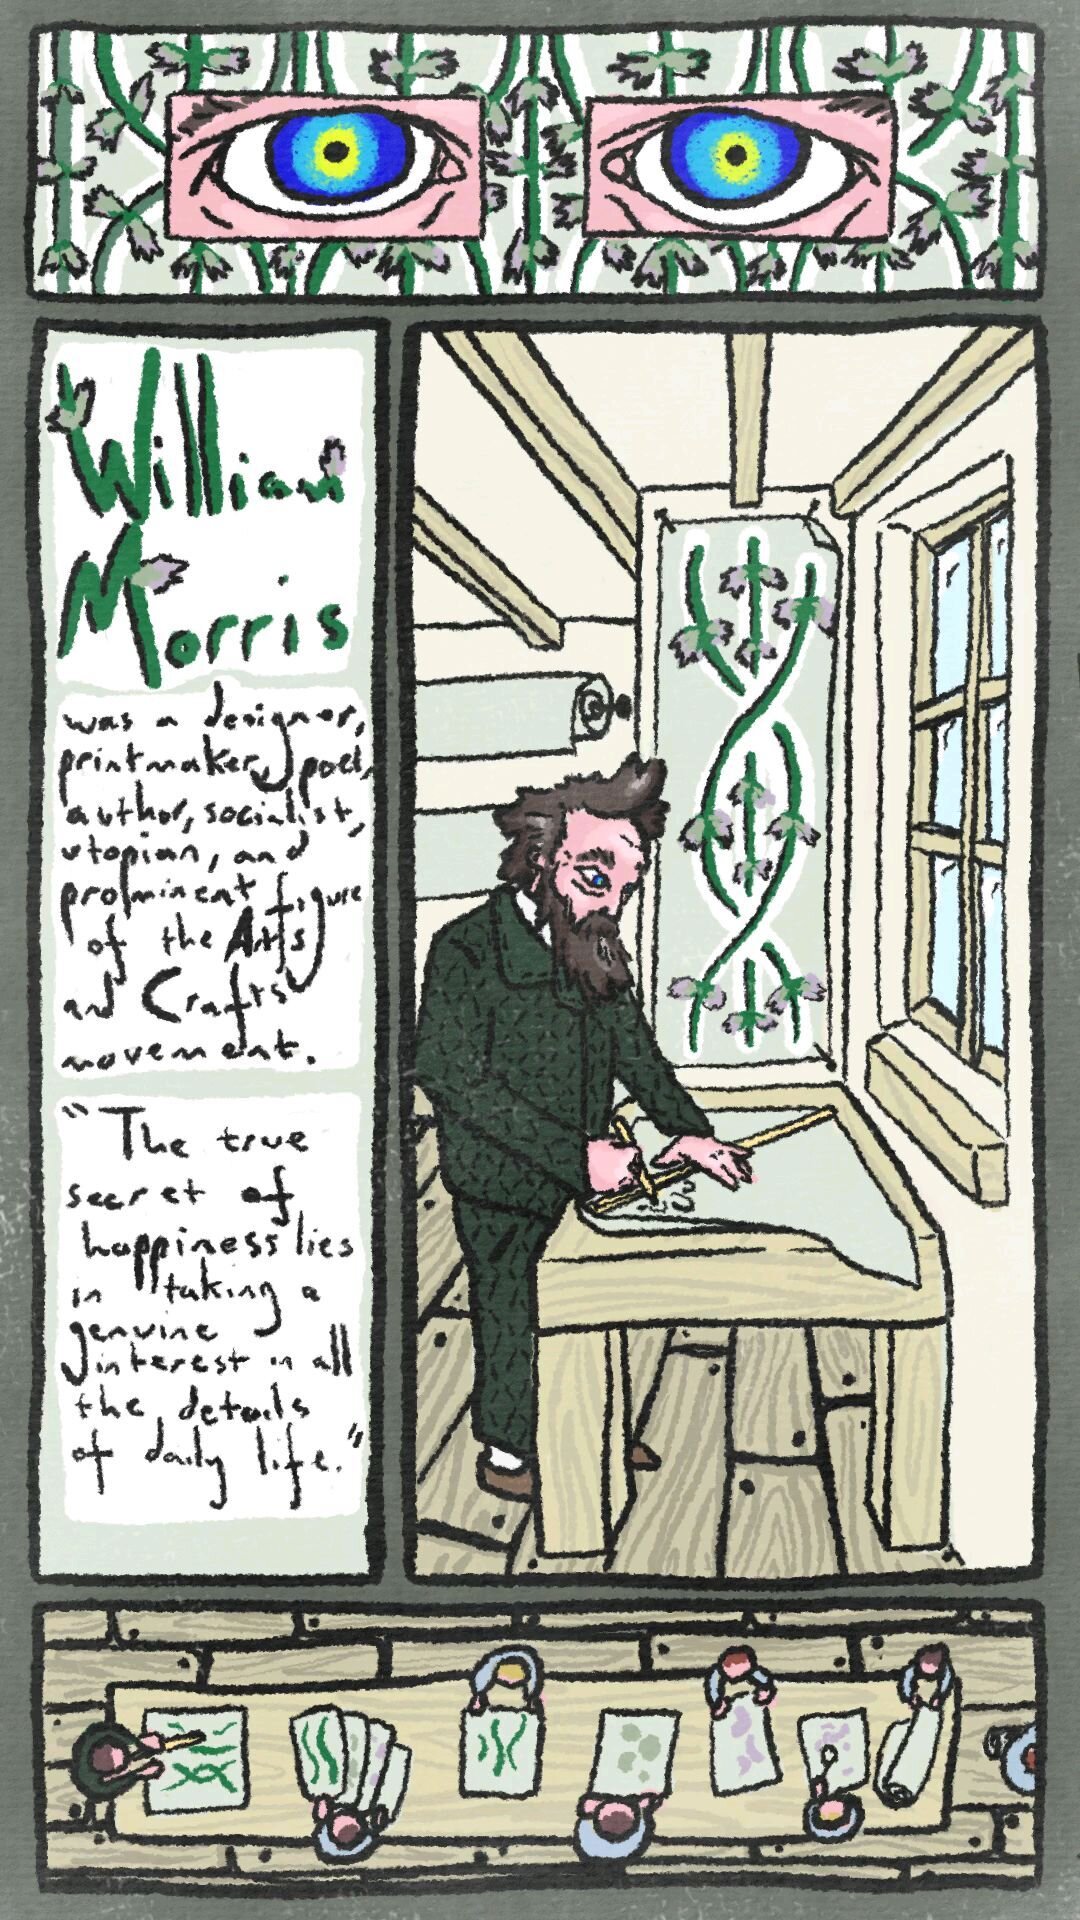 William
Morris
was a designer,
printmaker, poet,
author, socialist,
utopian, and
prominent figure
of the Arts
and Crafts
movement.
"The true
secret of
happiness lies
in taking a
genuine
interest in all
the details
of daily life."